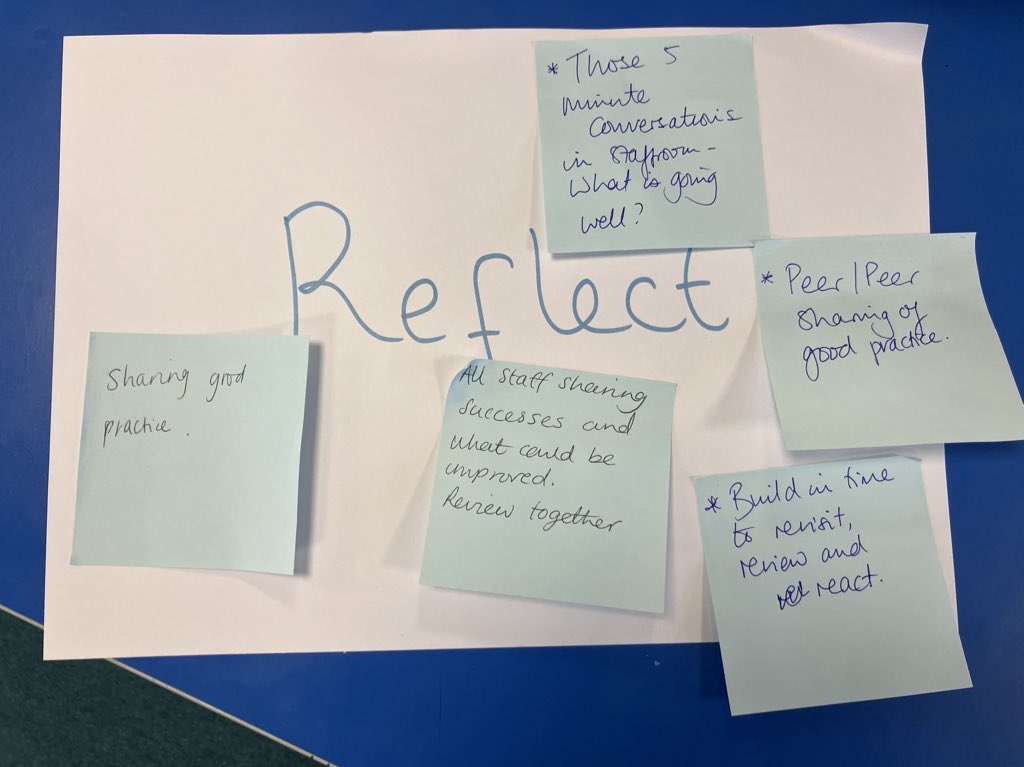 Reflect
* Those 5
minute
conversations
in staffroom -
What is going
well?
* Peer/Peer
sharing of
good practice.
Sharing good
practice.
All staff sharing
successes and
what could be
improved.
Review together
* Build in time
to revisit,
review and
react.